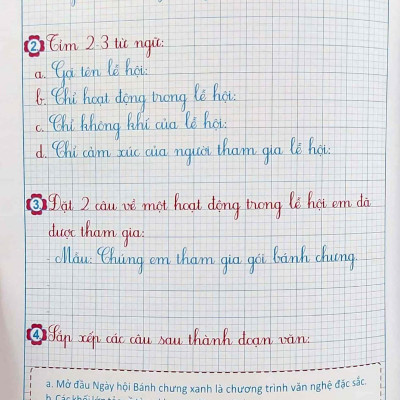 2 Tìm 2-3 từ ngữ:
a. Gọi tên lễ hội:
b. Chỉ hoạt động trong lễ hội:
c. Chỉ không khí của lễ hội:
d. Chỉ cảm xúc của người tham gia lễ hội:
3 Đặt 2 câu về một hoạt động trong lễ hội em đã
được tham gia:
- Mẫu: Chúng em tham gia gói bánh chưng.
4 Sắp xếp các câu sau thành đoạn văn:
a. Mở đầu Ngày hội Bánh chưng xanh là chương trình văn nghệ đặc sắc.
b. Các khối lớp